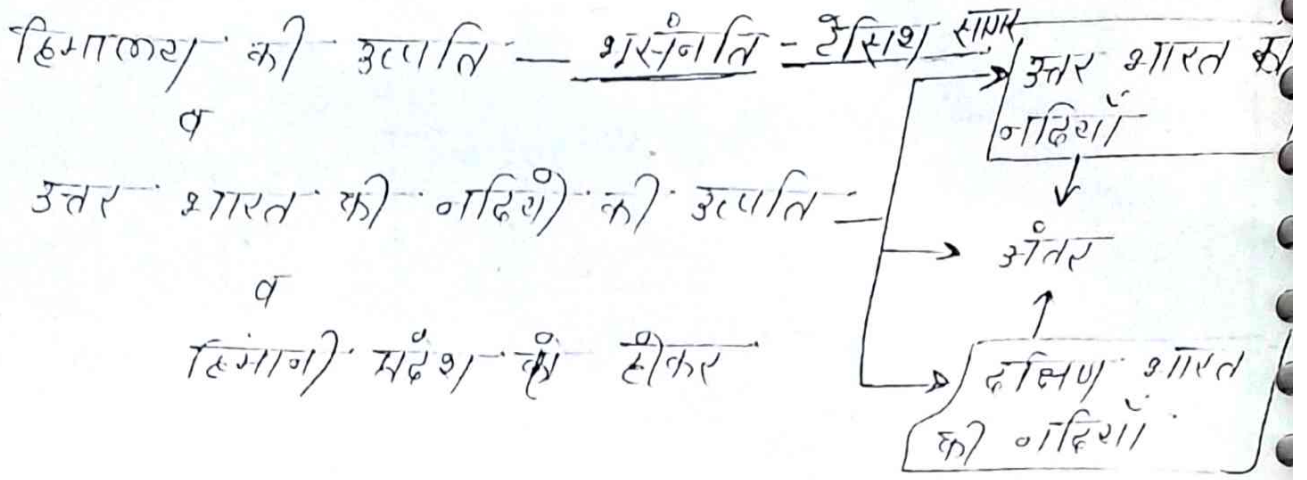 हिमालय की उत्पति — भूसंनति - टेसिश सागर
व
उत्तर भारत की नदियों की उत्पति =
व
हिमानी प्रदेश से होकर
उत्तर भारत की
नदियाँ
अंतर
दक्षिण भारत
की नदियाँ